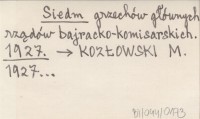 Siedm grzechów głównych
rządów bajracko-komisarskich.
1927. → KOZŁOWSKI M.
1927...